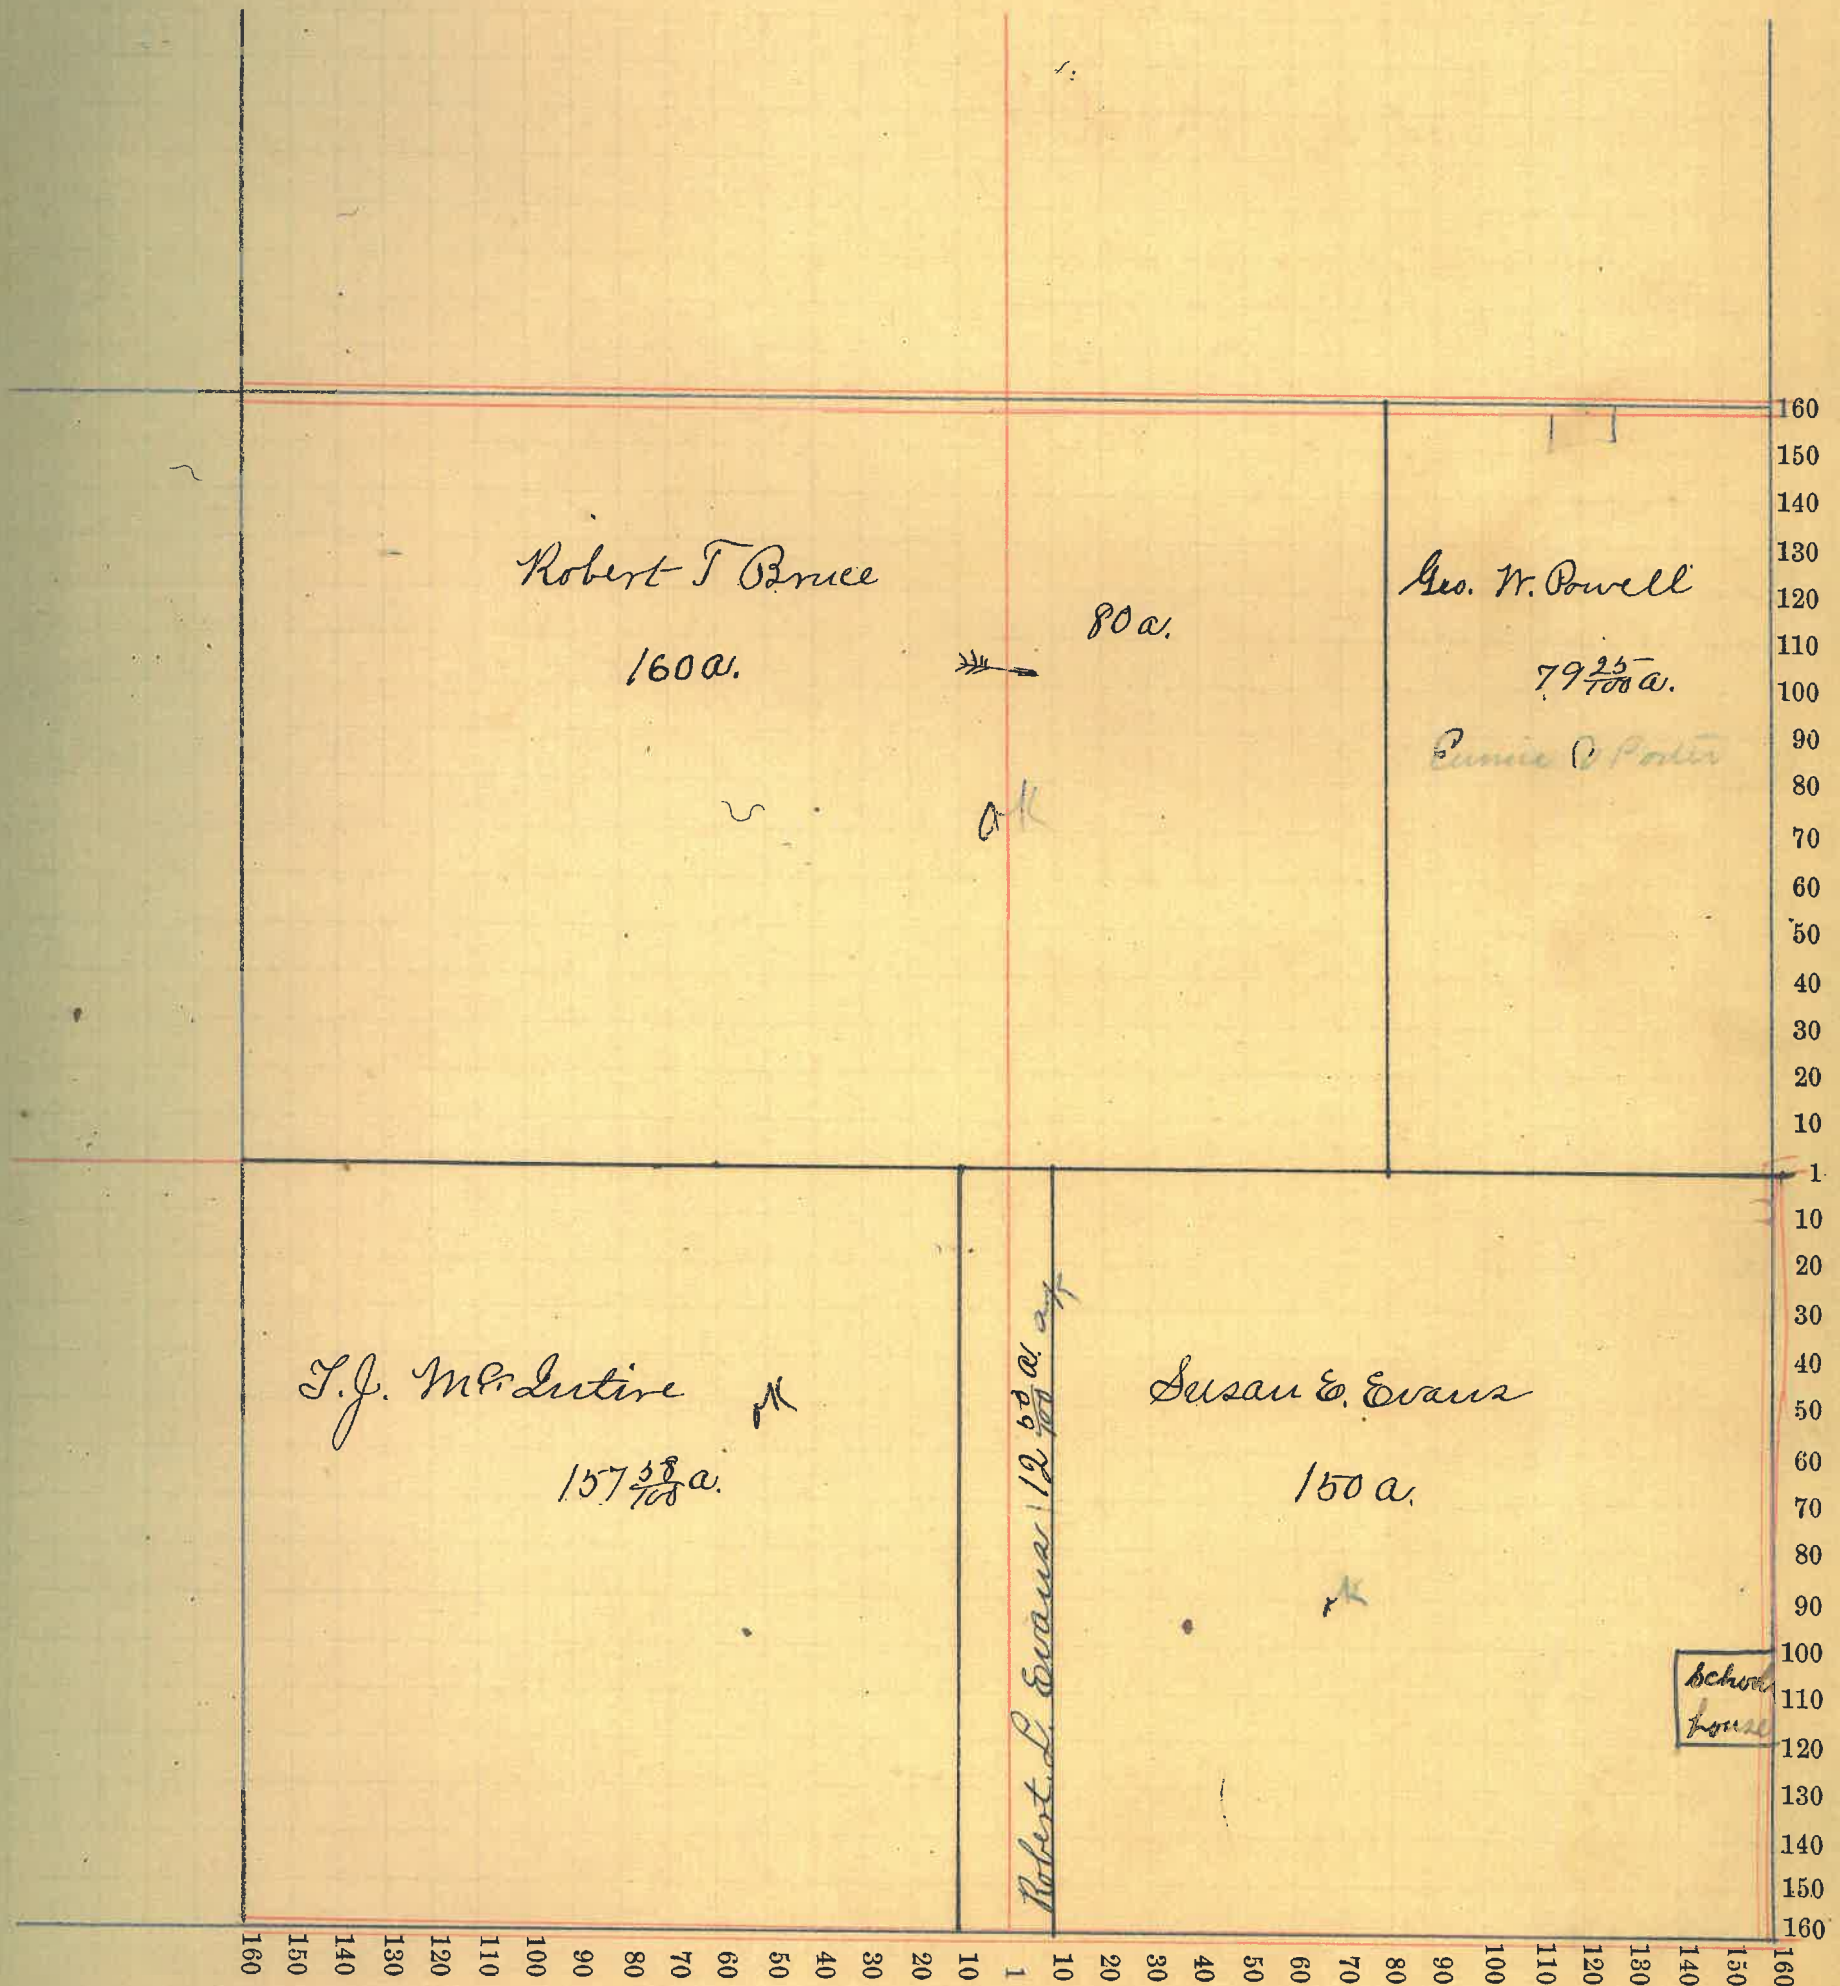 Robert T Bruce
160 a.
80 a.
Geo. W. Powell
79 25/100 a.
Eunice Porter
T.J. McIntire
157 58/100 a.
ok
Robert L. Evans 12 50/100 a.
Susan E. Evans
150 a.
ok
School
house
160
150
140
130
120
110
100
90
80
70
60
50
40
30
20
10
1
10
20
30
40
50
60
70
80
90
100
110
120
130
140
150
160
160 150 140 130 120 110 100 90 80 70 60 50 40 30 20 10 1 10 20 30 40 50 60 70 80 90 100 110 120 130 140 150 160